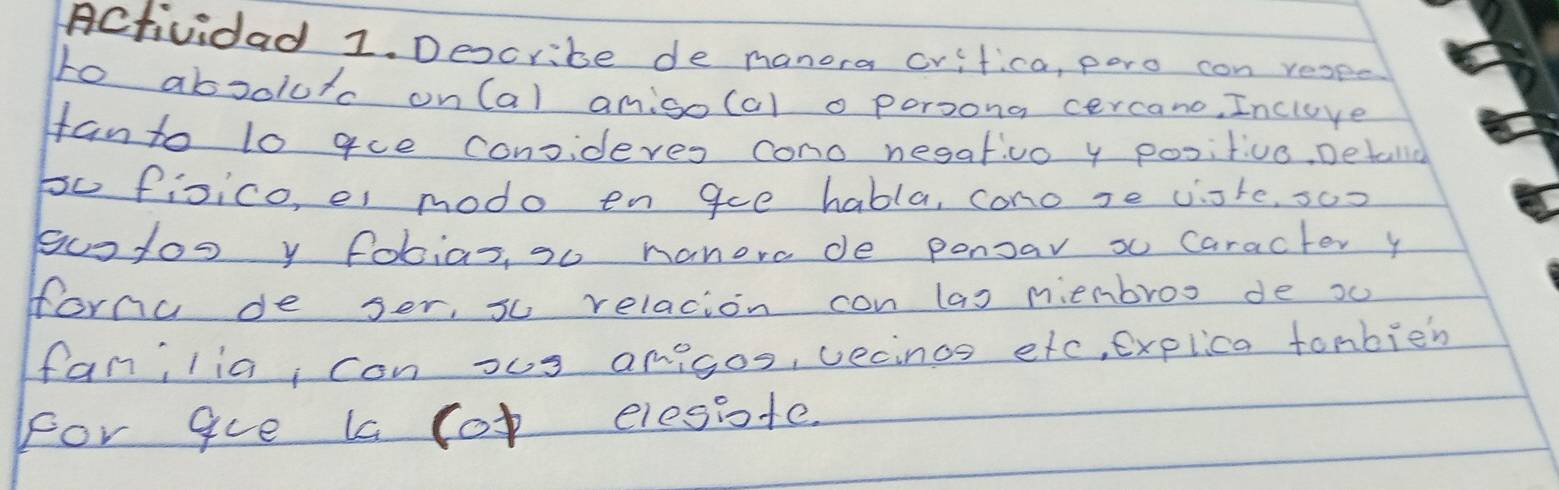 Actividad 1. Describe de manera critica, pero con respe
to absoluto un(a) amigo(a) o persona cercano. Incluye
tanto lo que consideres como negativo y positivo. Detalla
su fisico, el modo en que habla, como se viste, sus
gustos y fobias, su manera de pensar su caracter y
forma de ser, su relación con las miembros de su
familia, con sus amigos, vecinos etc, Explica tambien
por que la (o) elegiste.